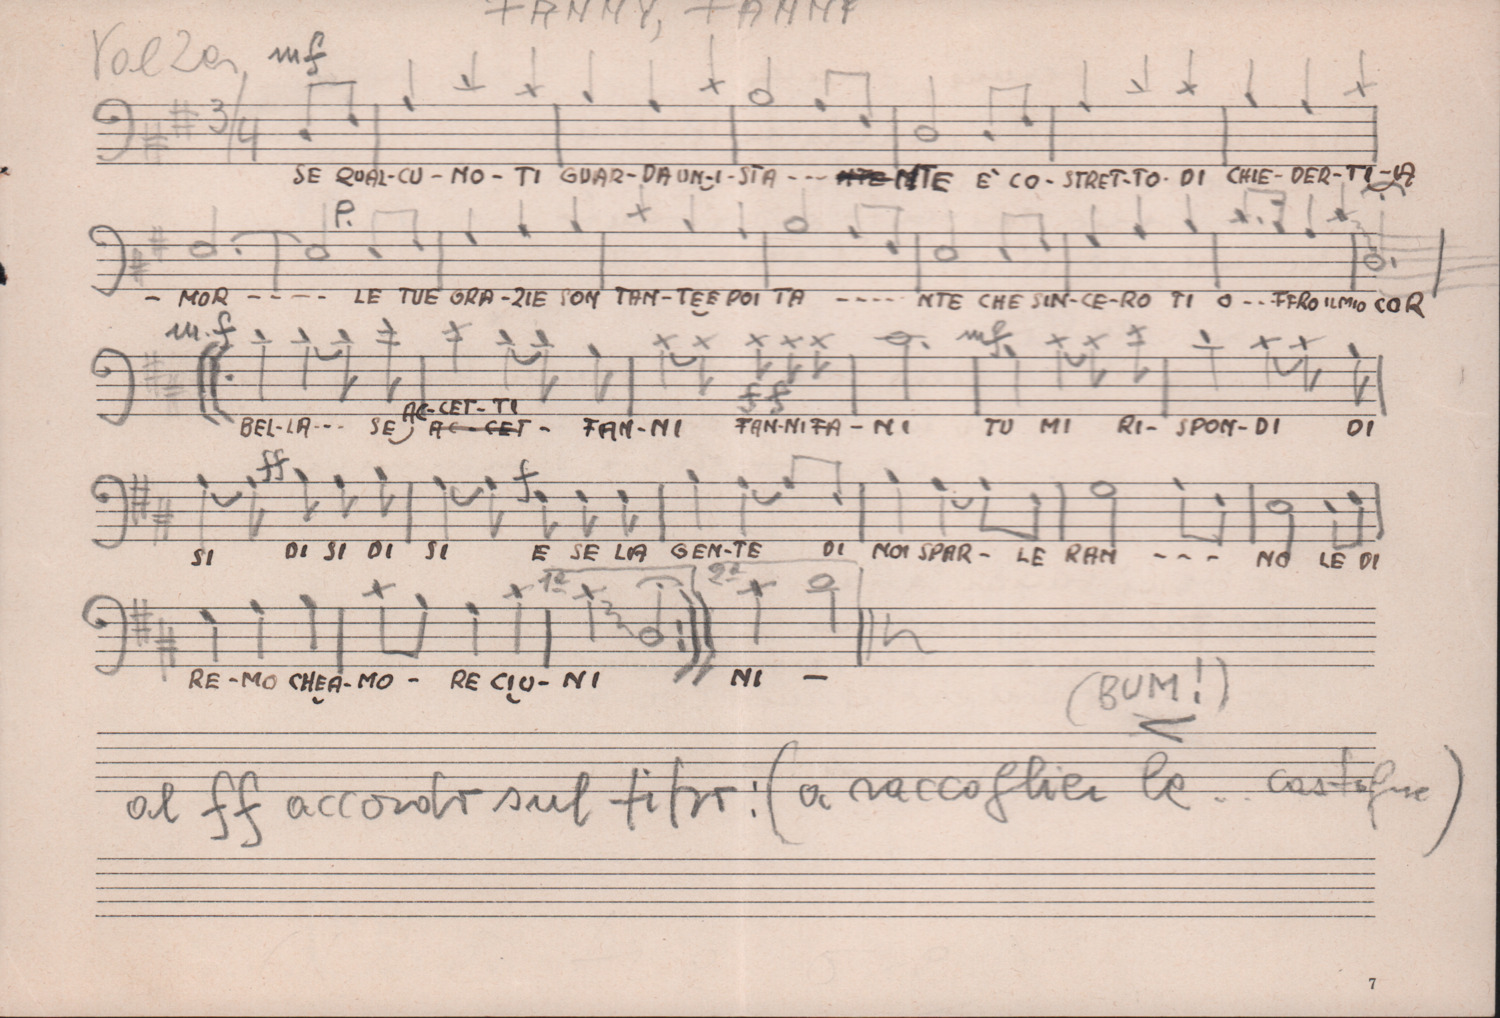 FANNY, FANNY
Valzer mf
3/4
SE QUAL-CU-NO-TI GUAR-DA UN-I-STA --- NTE E' CO-STRET-TO-DI CHIE-DER-TI-L'A
P.
- MOR ----- LE TUE GRA-ZIE SON TAN-TE E POI TA ----- NTE CHE SIN-CE-RO TI O --FFRO IL MIO COR
m.f mf
AC-CET-TI
BEL-LA--- SE AC-CET- FAN-NI FAN-NI FA-NI TU MI RI-SPON-DI DI
ff
ff f
SI DI SI DI SI E SE LA GEN-TE DI NOI SPAR-LE RAN ---- NO LE DI
1a 2a
RE-MO CHE A-MO-RE CI U-NI NI —
(BUM!)
al ff accordo sul titro: (a raccoglier le ... castagne)
7